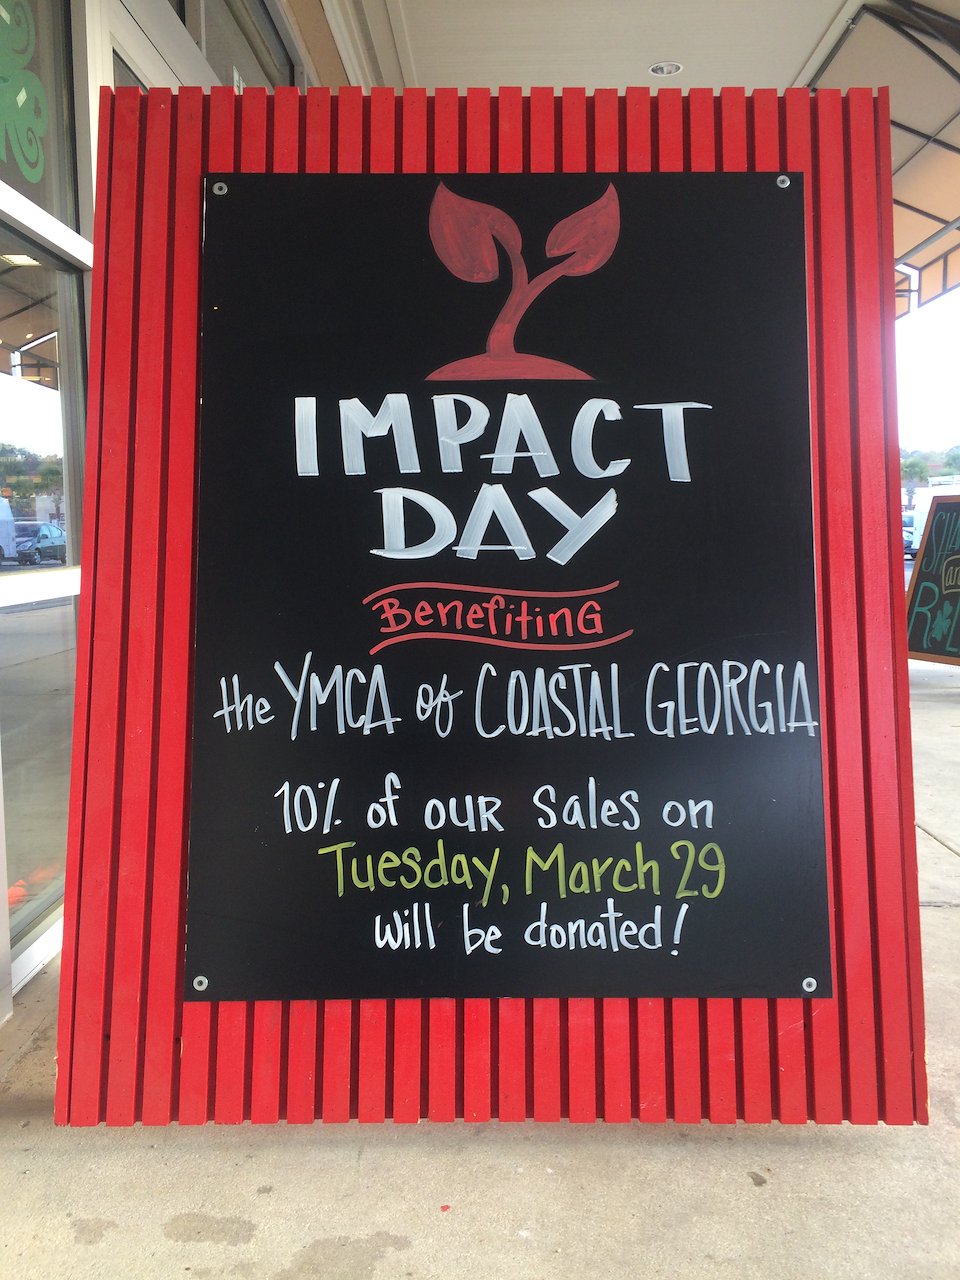 IMPACT
DAY
Benefiting
the YMCA of COASTAL GEORGIA
10% of our sales on
Tuesday, March 29
will be donated!